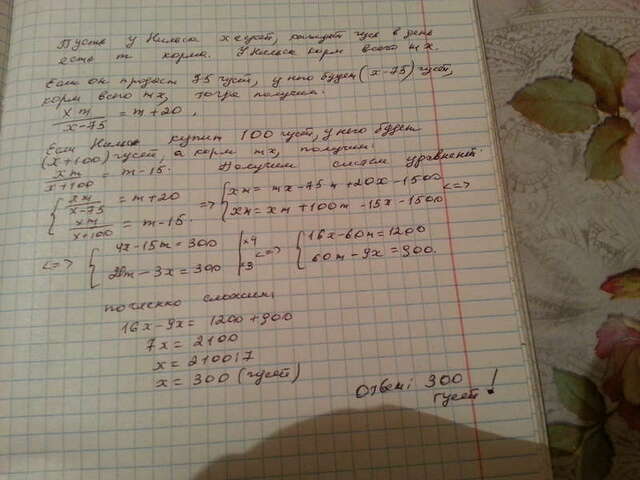 Пусть у Нильса x гусей, каждый гусь в день
есть m корма. У Нильса корм всего mx.
Если он продаст 75 гусей, у него будет (x-75) гусей,
корм всего mx, тогда получим:
xm/(x-75) = m+20,
Если Нильс купит 100 гусей, у него будет
(x+100) гусей, а корм mx, получим:
xm/(x+100) = m-15. Получим систем уравнений:
{ xm/(x-75) = m+20 => { xm = mx-75m+20x-1500 <=>
xm/(x+100) = m-15. xm = xm+100m-15x-1500
<=> { 4x-15m=300 |x4 <=> { 16x-60m=1200
20m-3x=300 |x3 60m-9x=900.
почленно сложим:
16x-9x= 1200+900
7x = 2100
x = 2100:7
x = 300 (гусей)
Ответ: 300
гусей!